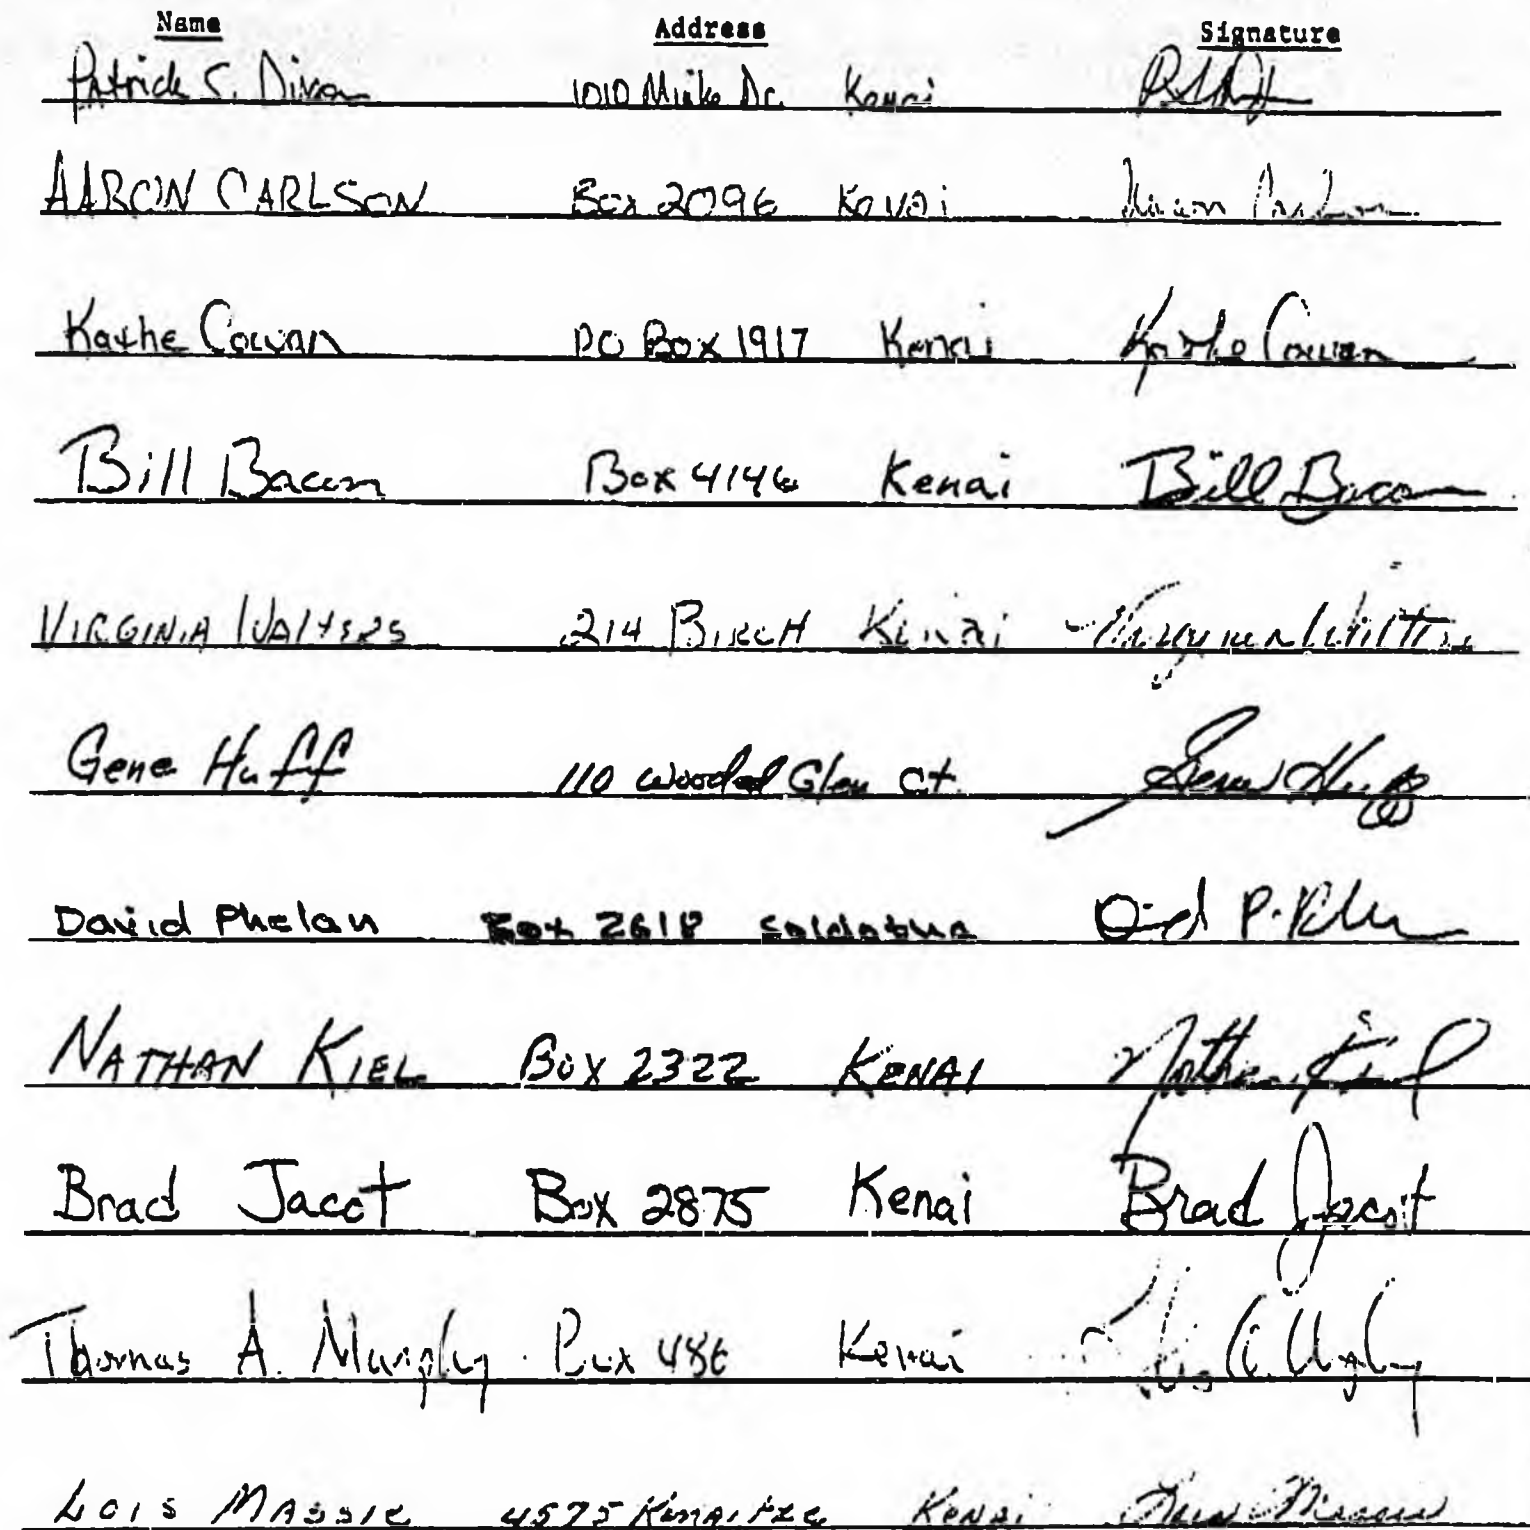 Name Address Signature
Patrick S. Dixon 1010 Mink Dr. Kenai
AARON CARLSON Box 2096 Kenai Aaron Carlson
Kathe Cowan PO Box 1917 Kenai Kathe Cowan
Bill Bacon Box 4146 Kenai Bill Bacon
VIRGINIA WALTERS 214 BIRCH Kenai Virginia Walters
Gene Huff 110 Wooded Glen Ct. Gene Huff
David Phelan Box 2618 Soldotna
NATHAN KIEL Box 2322 KENAI Nathan Kiel
Brad Jacot Box 2875 Kenai Brad Jacot
Thomas A. Murphy Box 486 Kenai
LOIS MASSIE 4575 Kenaitze Kenai Lois Massie